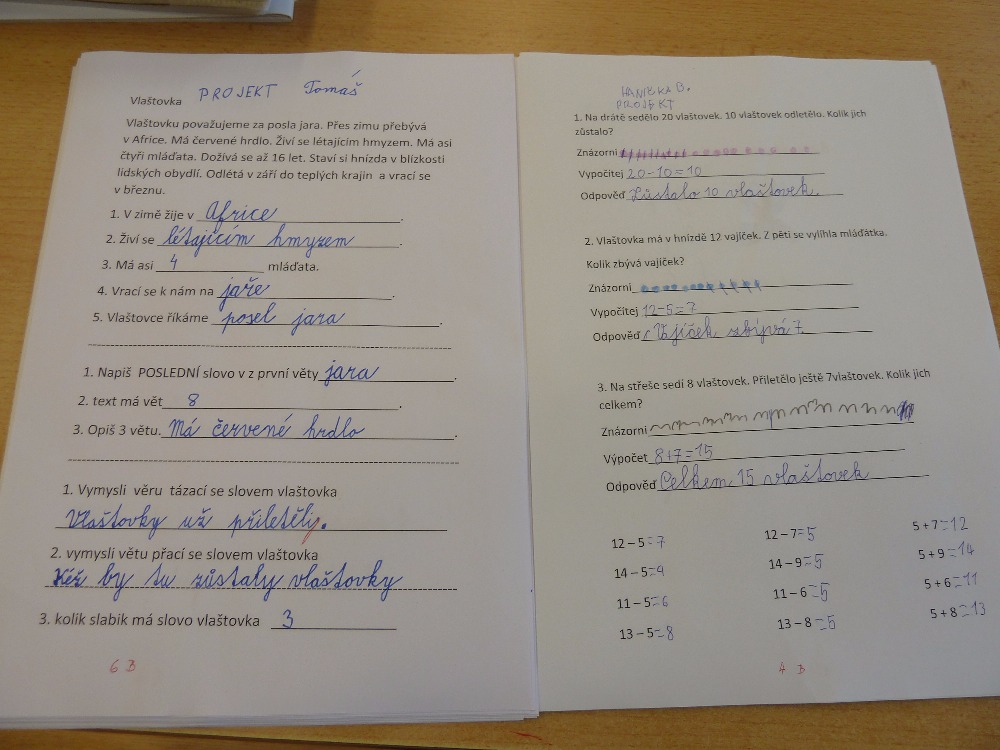 Vlaštovka PROJEKT Tomáš
Vlaštovku považujeme za posla jara. Přes zimu přebývá
v Africe. Má červené hrdlo. Živí se létajícím hmyzem. Má asi
čtyři mláďata. Dožívá se až 16 let. Staví si hnízda v blízkosti
lidských obydlí. Odlétá v září do teplých krajin a vrací se
v březnu.
1. V zimě žije v Africe.
2. Živí se létajícím hmyzem.
3. Má asi 4 mláďata.
4. Vrací se k nám na jaře.
5. Vlaštovce říkáme posel jara.
1. Napiš POSLEDNÍ slovo v z první věty jara.
2. text má vět 8.
3. Opiš 3 větu. Má červené hrdlo.
1. Vymysli věru tázací se slovem vlaštovka
Vlaštovky už přiletěly.
2. vymysli větu přací se slovem vlaštovka
Kéž by tu zůstaly vlaštovky
3. kolik slabik má slovo vlaštovka 3
6 B
HANIČKA B.
PROJEKT
1. Na drátě sedělo 20 vlaštovek. 10 vlaštovek odletělo. Kolik jich
zůstalo?
Znázorni
Vypočítej 20-10=10
Odpověď Zůstalo 10 vlaštovek.
2. Vlaštovka má v hnízdě 12 vajíček. Z pěti se vylíhla mláďátka.
Kolik zbývá vajíček?
Znázorni
Vypočítej 12-5=7
Odpověď Vajíček zbývá 7.
3. Na střeše sedí 8 vlaštovek. Přiletělo ještě 7vlaštovek. Kolik jich
celkem?
Znázorni
Výpočet 8+7=15
Odpověď Celkem 15 vlaštovek
12 – 5=7 12 – 7=5 5 + 7=12
14 – 5=9 14 – 9=5 5 + 9=14
11 – 5=6 11 – 6=5 5 + 6=11
13 – 5=8 13 – 8=5 5 + 8=13
4 B